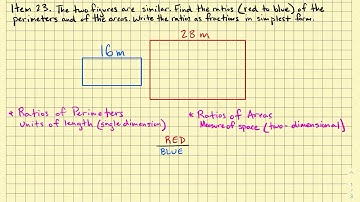 Item 23. The two figures are similar. Find the ratios (red to blue) of the
perimeters and of the areas. Write the ratios as fractions in simplest form.
28 m
16 m
* Ratios of Perimeters
units of length (single dimension)
* Ratios of Areas
Measure of space (two-dimensional)
RED
BLUE